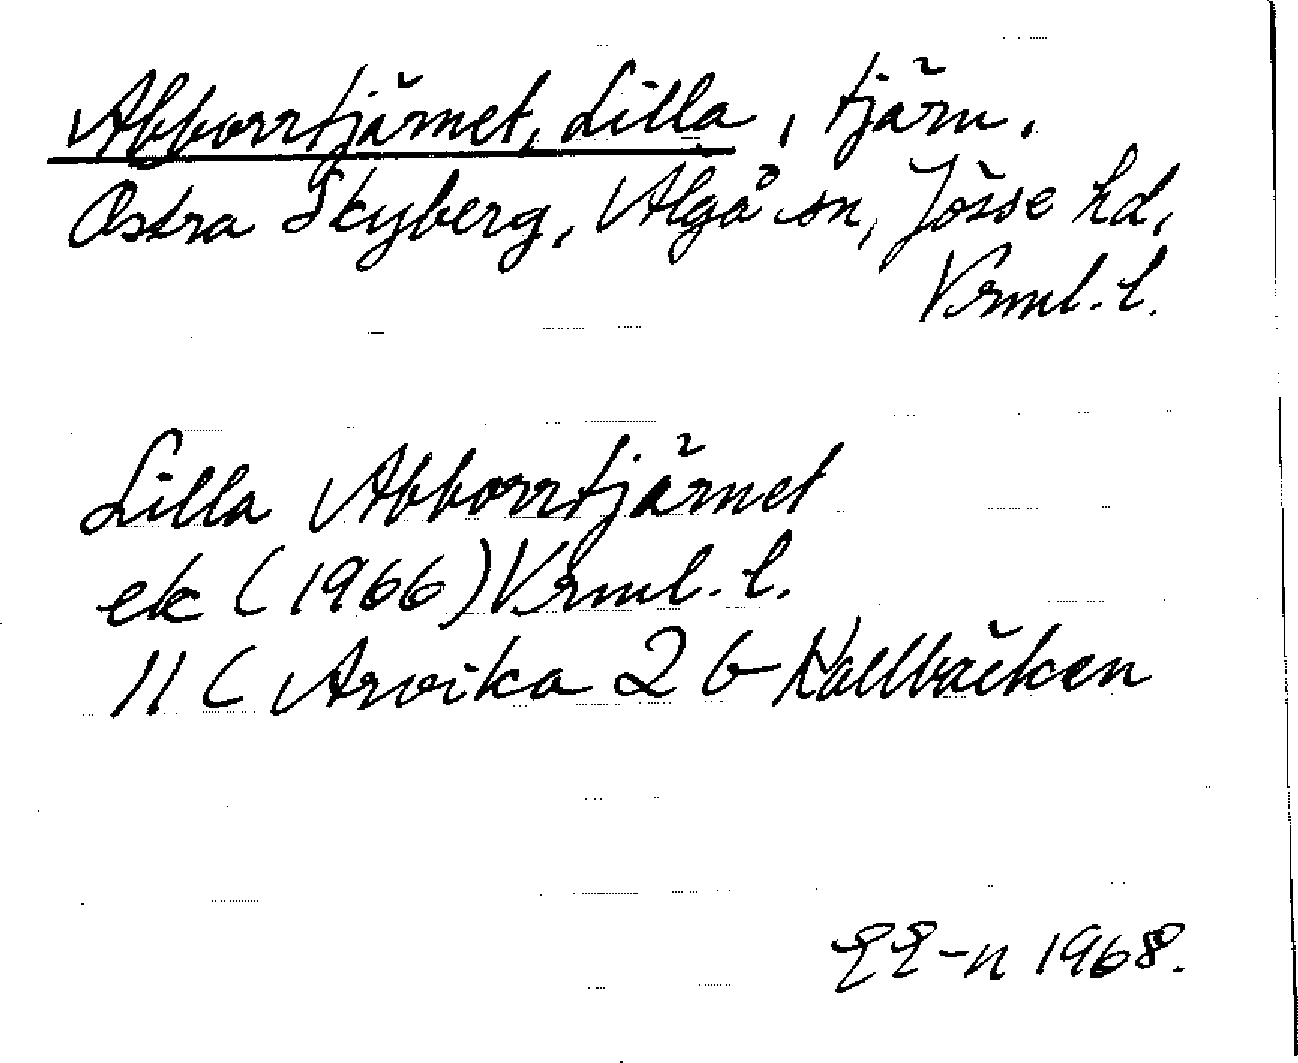 Abborrtjärnet, Lilla, tjärn.
Östra Skyberg, Älgå sn, Jösse hd,
Vrml. l.
Lilla Abborrtjärnet
ek (1966) Vrml. l.
11 C Arvika 2 b Kallbäcken
EE-n 1968.